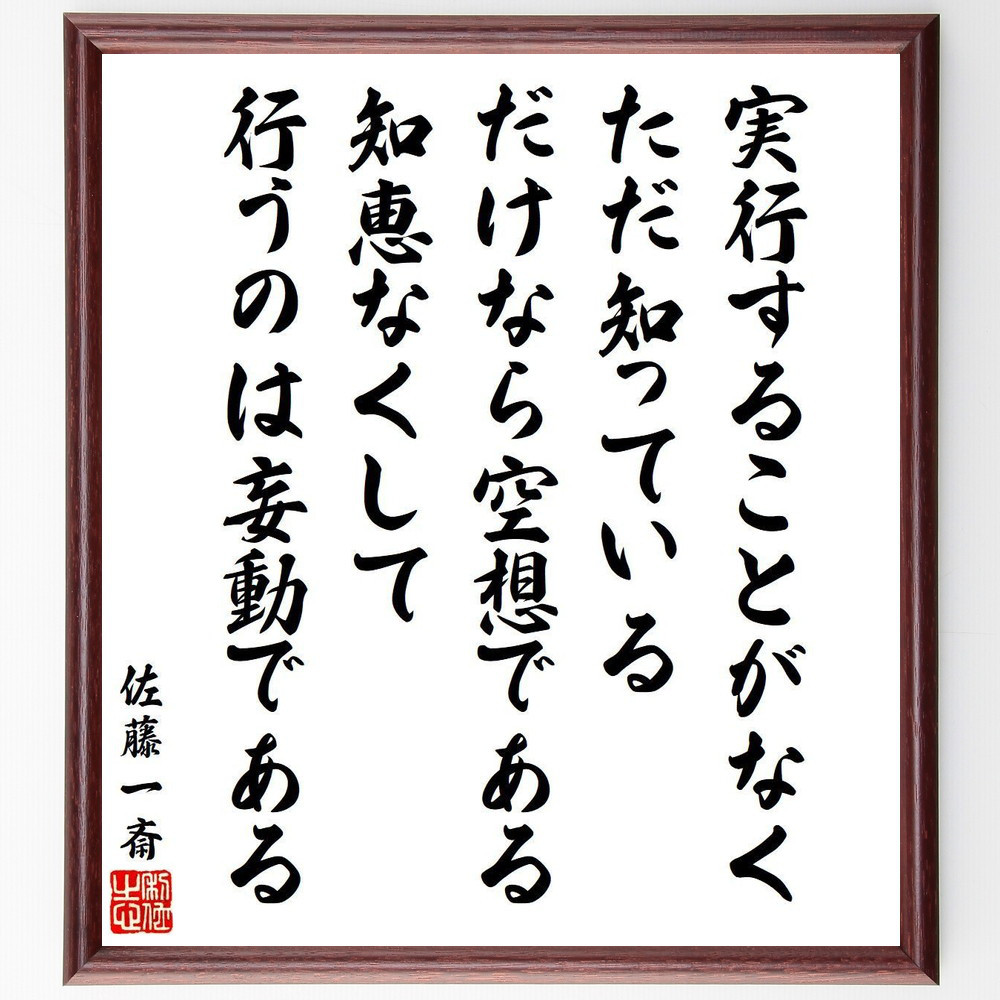 実行することがなく
ただ知っている
だけなら空想である
知恵なくして
行うのは妄動である
佐藤一斎